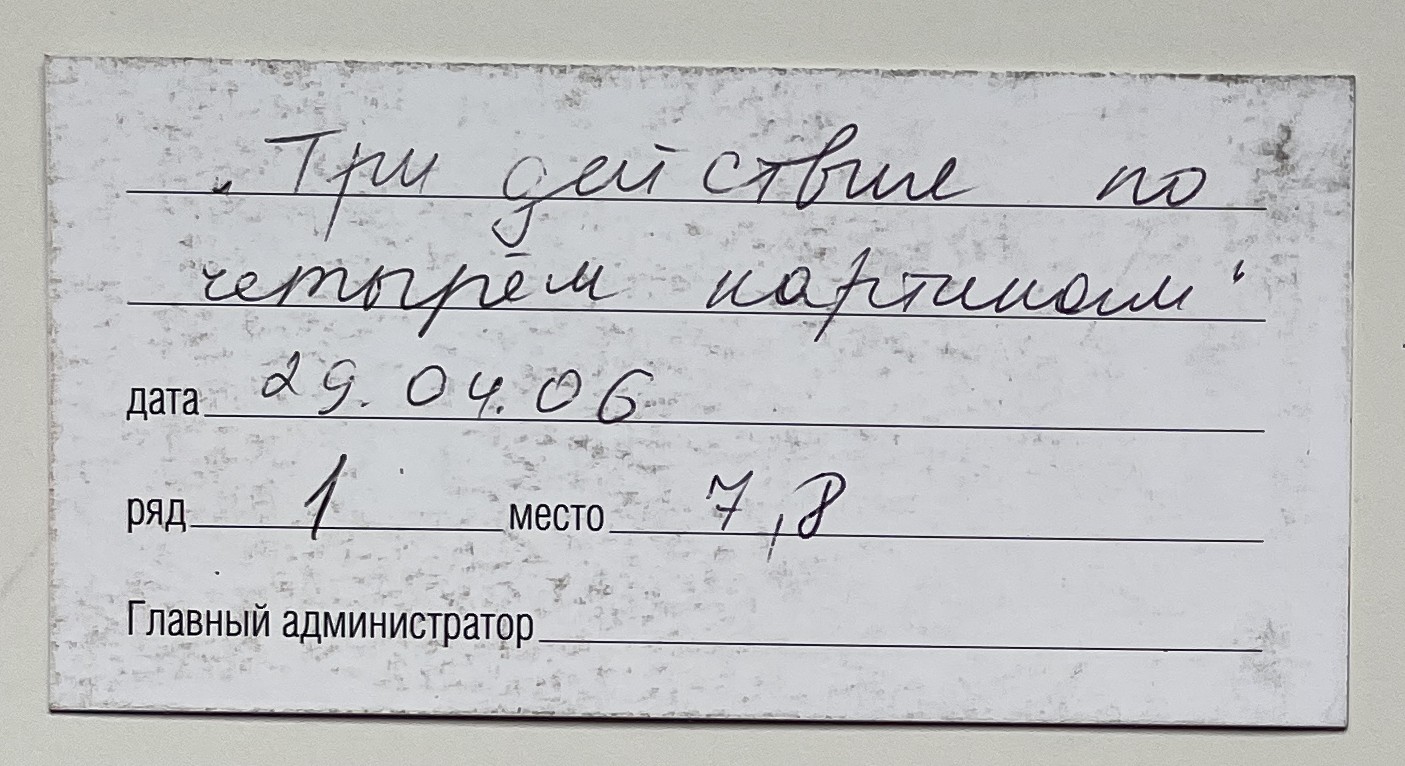 „Три действие по
четырём картинам“
дата 29.04.06
ряд 1 место 7,8
Главный администратор